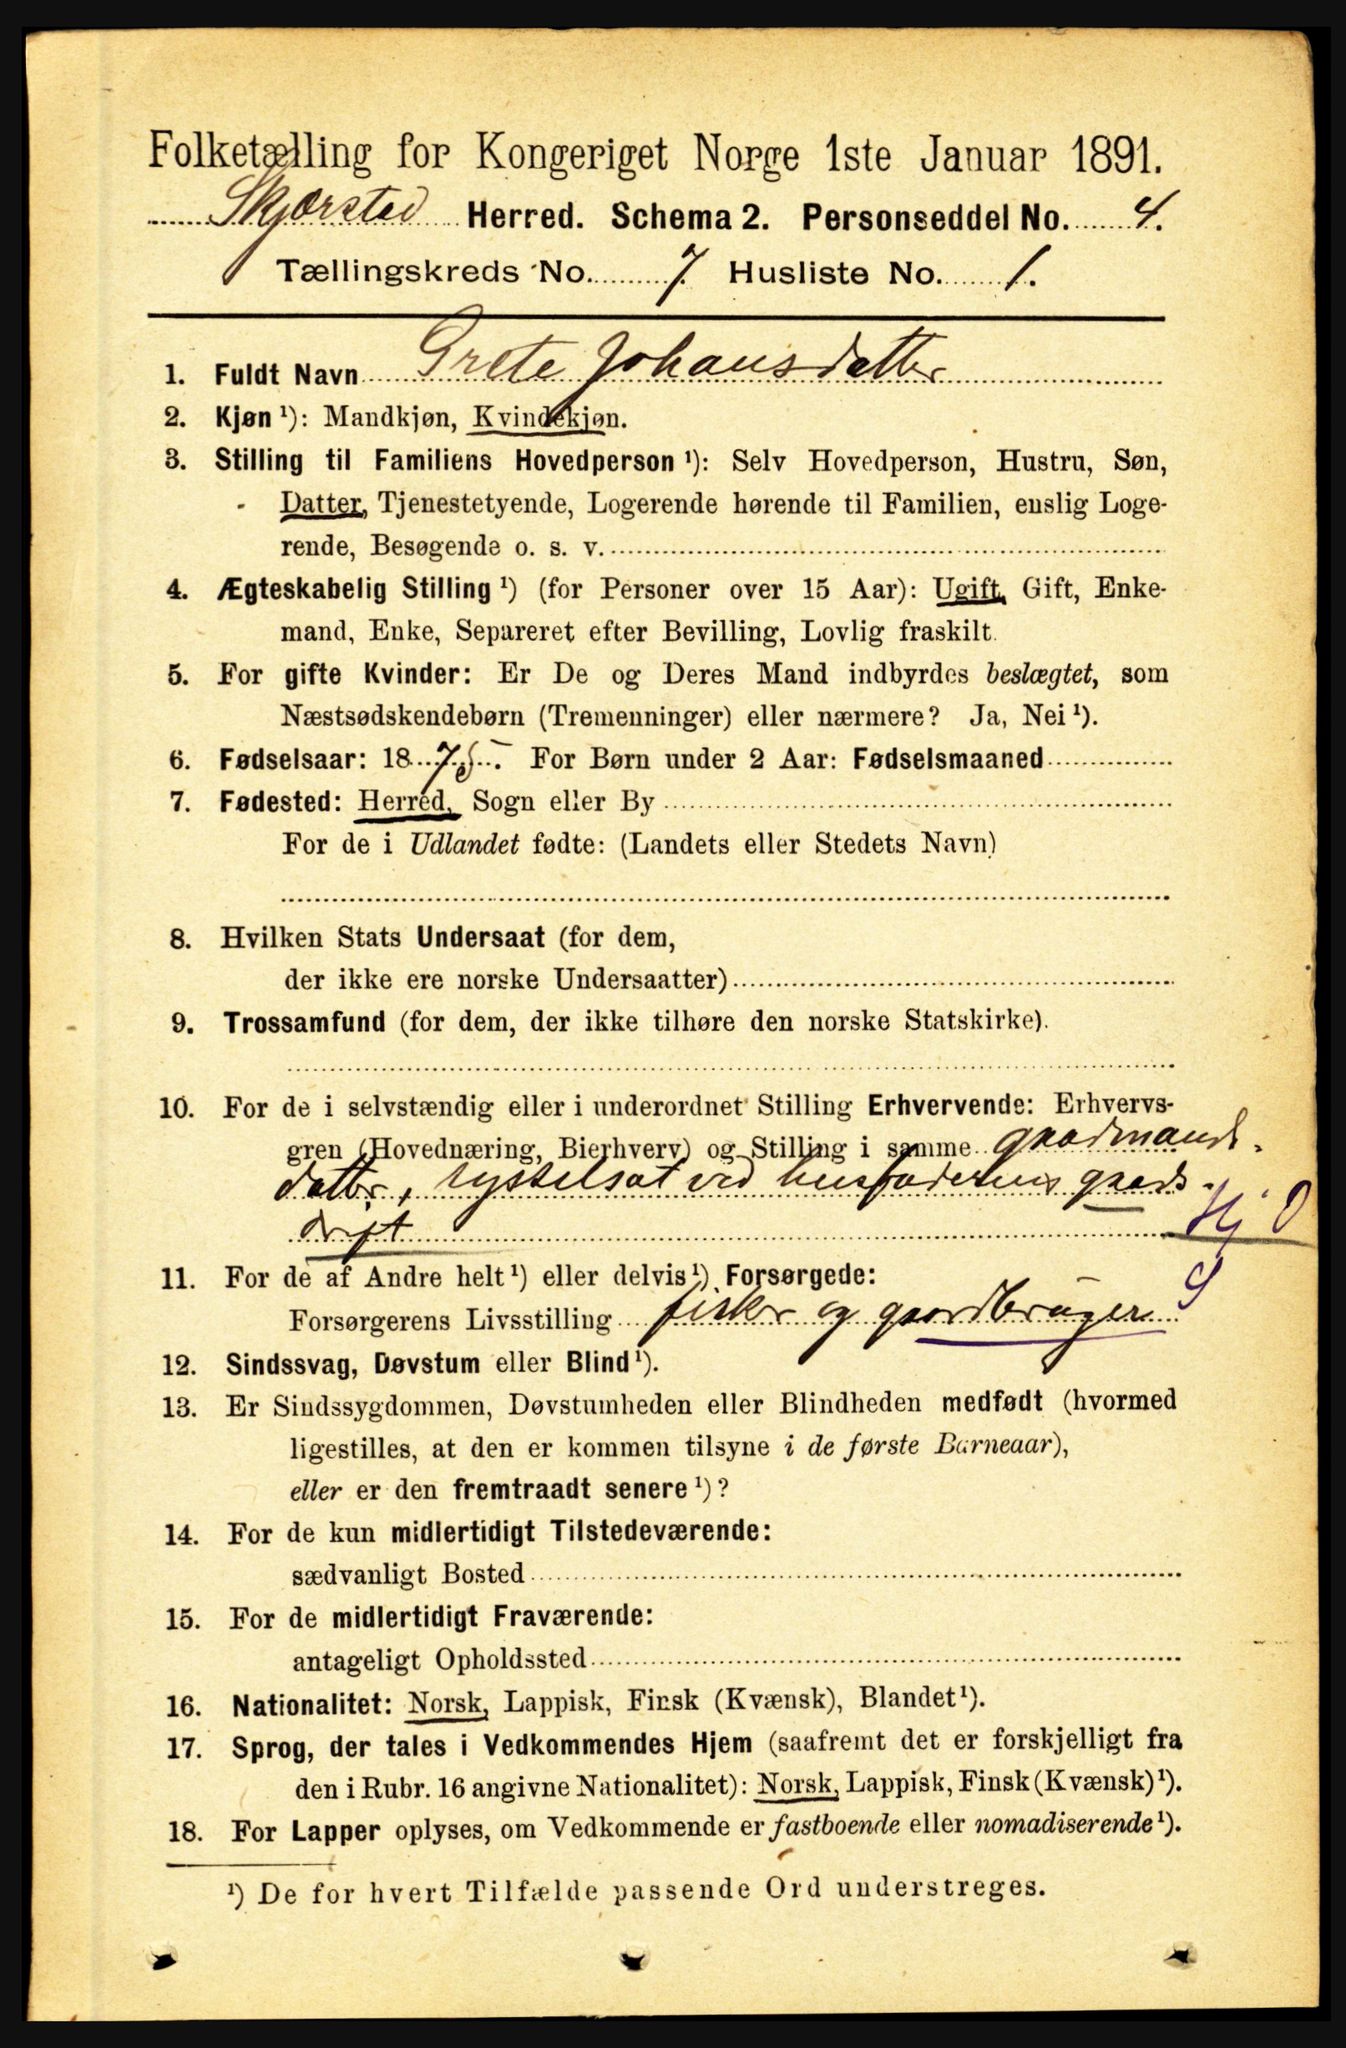 Folketælling for Kongeriget Norge 1ste Januar 1891.
Skjærstad Herred. Schema 2. Personseddel No. 4.
Tællingskreds No. 7. Husliste No. 1.
1. Fuldt Navn Grete Johansdatter
2. Kjøn ¹): Mandkjøn, Kvindekjøn.
3. Stilling til Familiens Hovedperson ¹): Selv Hovedperson, Hustru, Søn,
Datter, Tjenestetyende, Logerende hørende til Familien, enslig Loge-
rende, Besøgende o. s. v.
4. Ægteskabelig Stilling ¹) (for Personer over 15 Aar): Ugift, Gift, Enke-
mand, Enke, Separeret efter Bevilling, Lovlig fraskilt.
5. For gifte Kvinder: Er De og Deres Mand indbyrdes beslægtet, som
Næstsødskendebørn (Tremenninger) eller nærmere? Ja, Nei ¹).
6. Fødselsaar: 1875. For Børn under 2 Aar: Fødselsmaaned
7. Fødested: Herred, Sogn eller By
For de i Udlandet fødte: (Landets eller Stedets Navn)
8. Hvilken Stats Undersaat (for dem,
der ikke ere norske Undersaatter)
9. Trossamfund (for dem, der ikke tilhøre den norske Statskirke).
10. For de i selvstændig eller i underordnet Stilling Erhvervende: Erhvervs-
gren (Hovednæring, Bierhverv) og Stilling i samme gaardmands-
datter, sysselsat ved husfaderens gaards-
drift Hj
11. For de af Andre helt ¹) eller delvis ¹) Forsørgede:
Forsørgerens Livsstilling fisker og gaardbruger
12. Sindssvag, Døvstum eller Blind ¹).
13. Er Sindssygdommen, Døvstumheden eller Blindheden medfødt (hvormed
ligestilles, at den er kommen tilsyne i de første Barneaar),
eller er den fremtraadt senere ¹)?
14. For de kun midlertidigt Tilstedeværende:
sædvanligt Bosted
15. For de midlertidigt Fraværende:
antageligt Opholdssted
16. Nationalitet: Norsk, Lappisk, Finsk (Kvænsk), Blandet ¹).
17. Sprog, der tales i Vedkommendes Hjem (saafremt det er forskjelligt fra
den i Rubr. 16 angivne Nationalitet): Norsk, Lappisk, Finsk (Kvænsk) ¹).
18. For Lapper oplyses, om Vedkommende er fastboende eller nomadiserende ¹).
¹) De for hvert Tilfælde passende Ord understreges.